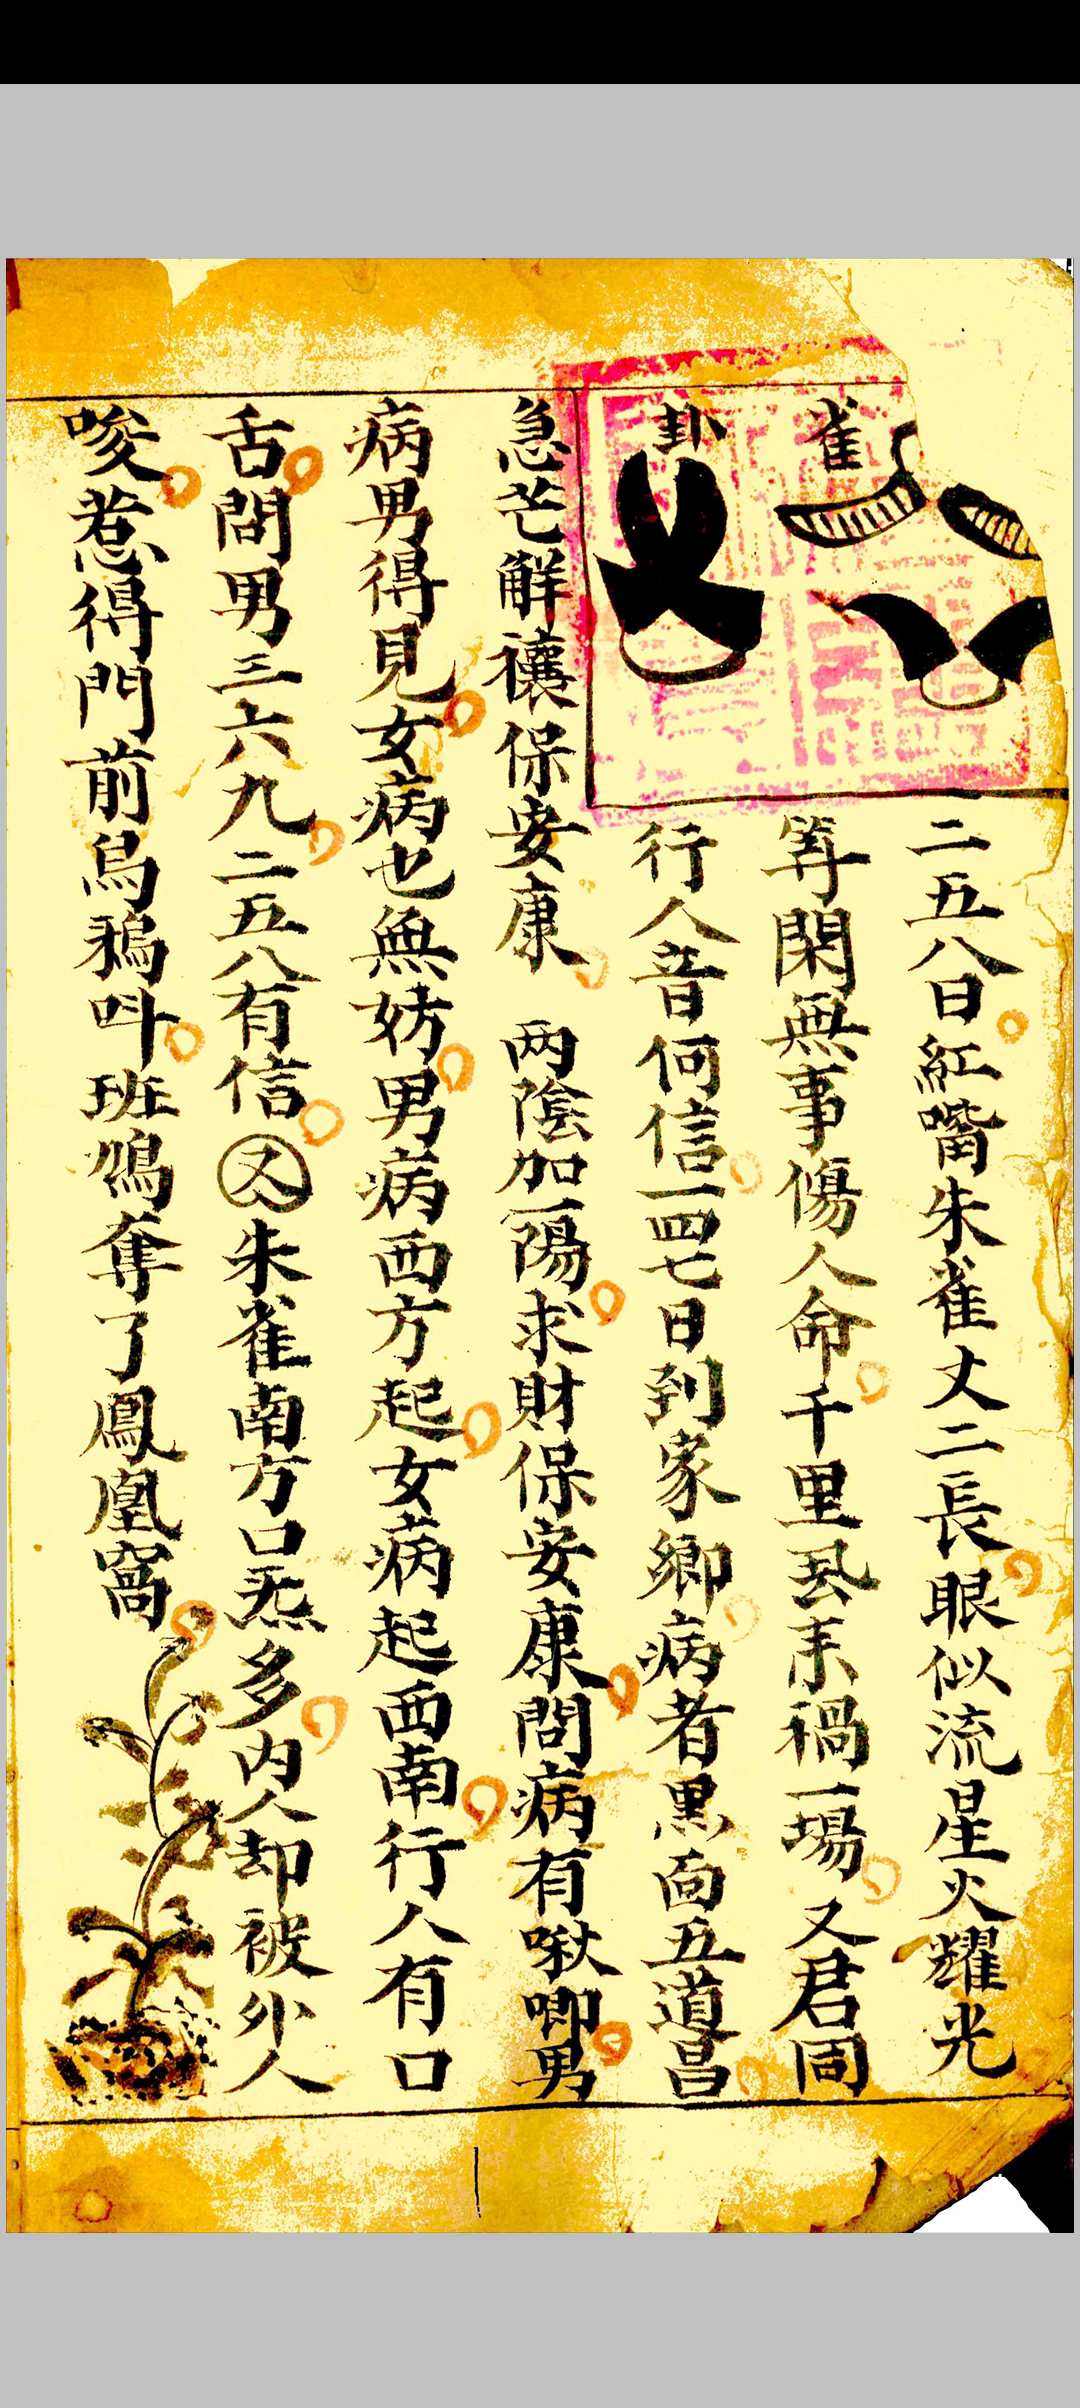 雀
卦
二五八日紅嘴朱雀丈二長眼似流星火耀光
等閑無事傷人命千里虱耒禍一場又君同
行人音何信一四七日到家鄉病者黑面五道昌
急芒解禳保安康 两陰加一陽求財保安康問病有啾唧男
病男得見女病也無妨男病西方起女病起西南行人有口
舌問男三六九二五八有信又朱雀南方口炁多内人却被外人
唆惹得門前烏鵶呌班鳩奪了鳳凰窩